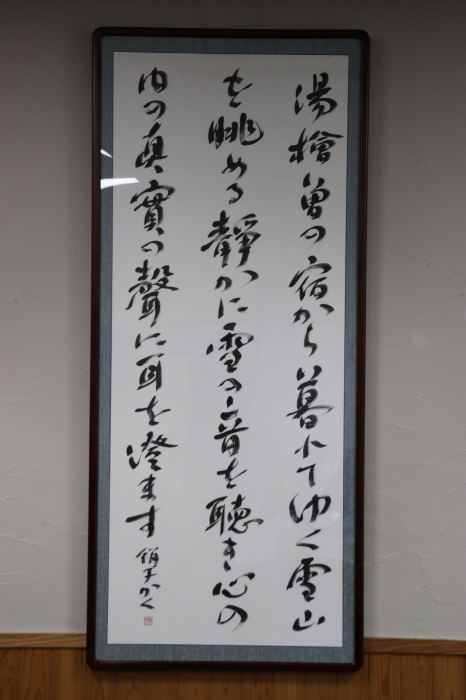 湯檜曽の宿から暮れてゆく雪山
を眺める靜かに雪の音を聴き心の
内の真實の聲に耳を澄ます かく